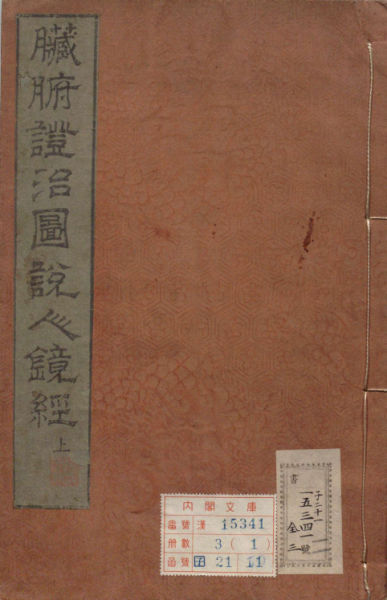 臟腑證治圖說人鏡經 上
內閣文庫
番號 漢 15341
冊數 3 ( 1 )
函號 子 21 11
書
子二十一
一五三四一號
全三